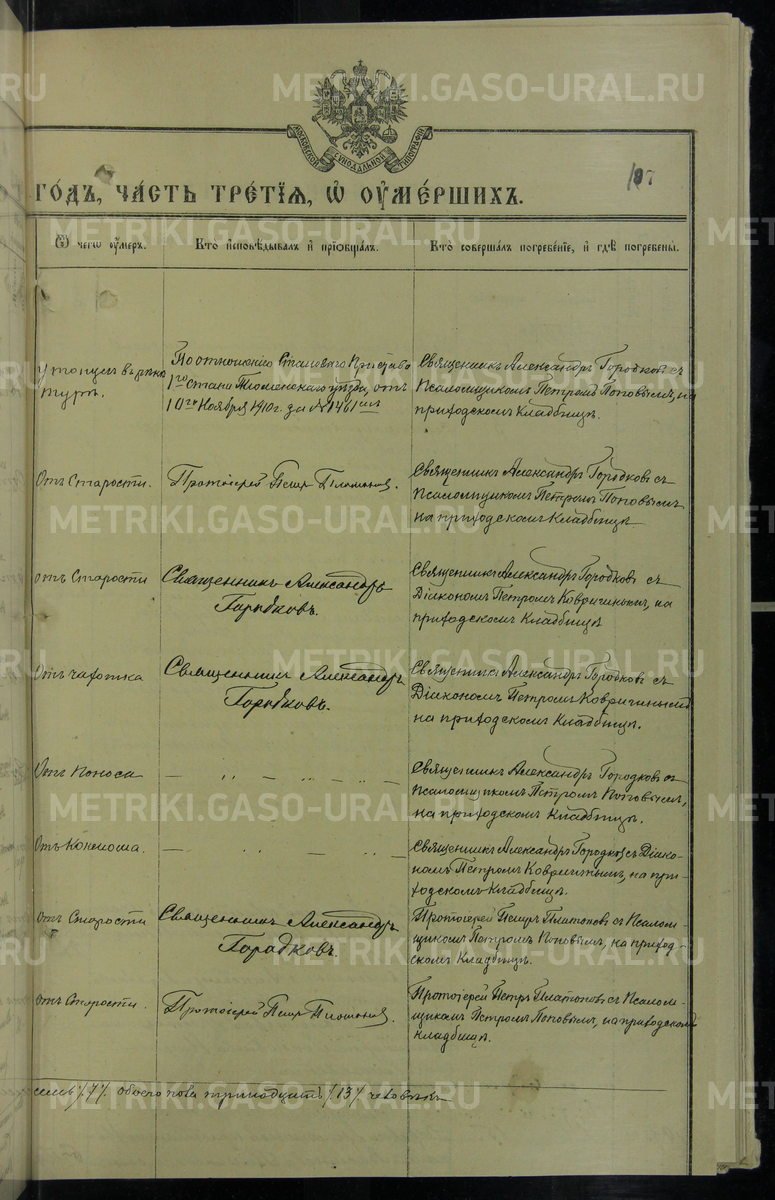 METRIKI.GASO-URAL.RU
МОСКОВСКОЙ СѴНОДАЛЬНОЙ ТИПОГРАФІИ
107
ГО́ДЪ, ЧА́СТЬ ТРЕ́ТЇѦ, Ѡ҆ ОУ҆МЕ́РШИХЪ.
Ѿ чегѡ̀ оу҆́меръ.
Кто̀ и҆сповѣ́дывалъ и҆ прїѡбща́лъ.
Кто̀ соверша́лъ погребе́нїе, и҆ гдѣ̀ погребе́ны.
утонулъ въ рѣкѣ
Турѣ.
По отношенію Становаго Пристава
1го Стана Тюменскаго уѣзда, отъ
10го Ноября 1910 г. за № 1461мъ
Священникъ Александръ Городковъ съ
Псаломщикомъ Петромъ Поповымъ, на
приходскомъ кладбищѣ.
Отъ Старости.
Протоіерей Петръ Платоновъ.
Священникъ Александръ Городковъ съ
Псаломщикомъ Петромъ Поповымъ
на приходскомъ кладбищѣ
отъ Старости
Священникъ Александръ
Городковъ.
Священникъ Александръ Городковъ съ
Діакономъ Петромъ Ковригинымъ, на
приходскомъ кладбищѣ
Отъ чахотка
Священникъ Александръ
Городковъ.
Священникъ Александръ Городковъ съ
Діакономъ Петромъ Ковригинымъ
на приходскомъ кладбищѣ.
Отъ поноса
— „ — „ — „ —
Священникъ Александръ Городковъ съ
Псаломщикомъ Петромъ Поповымъ,
на приходскомъ кладбищѣ.
Отъ
— „ — „ —
Священникъ Александръ Городковъ съ Діако-
номъ Петромъ Ковригинымъ, на при-
ходскомъ кладбищѣ.
отъ Старости
Священникъ Александръ
Городковъ.
Протоіерей Петръ Платоновъ съ Псалом-
щикомъ Петромъ Поповымъ, на приход-
скомъ кладбищѣ.
отъ Старости.
Протоіерей Петръ Платоновъ.
Протоіерей Петръ Платоновъ съ Псалом-
щикомъ Петромъ Поповымъ, на приходскомъ
кладбищѣ.
семь /7/ обоего пола тринадцать /13/ человѣкъ